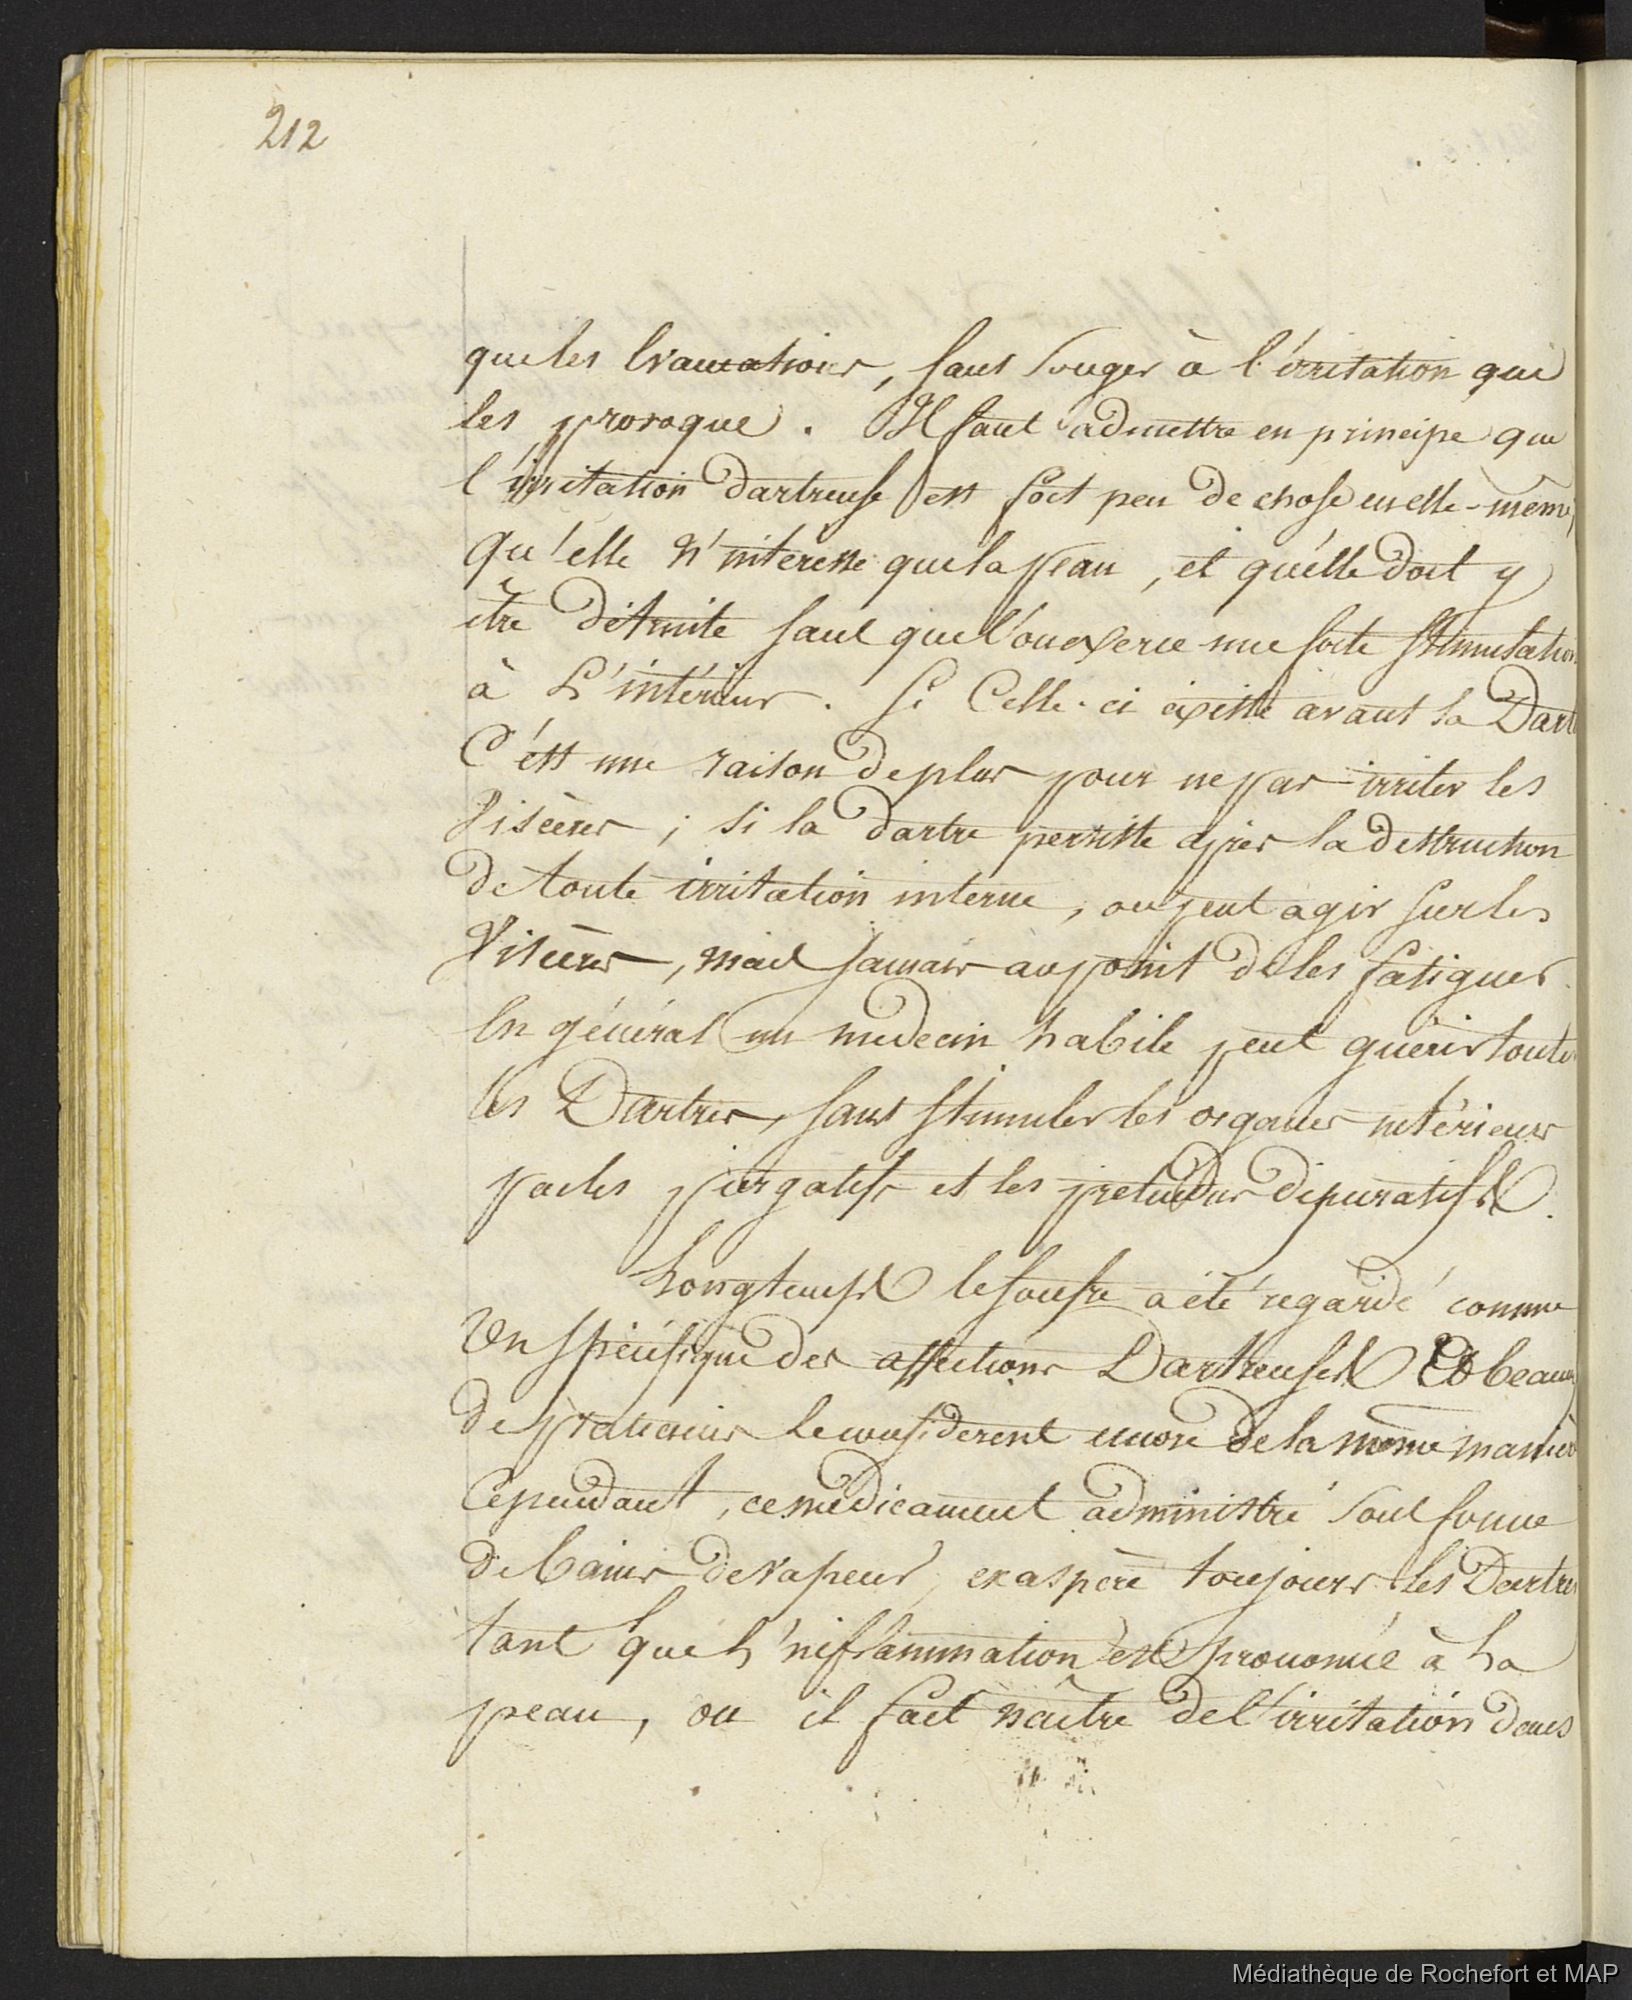 212
que les évacuations, sans songer à l'irritation qui
les provoque. Il faut admettre en principe que
l'irritation dartreuse est fort peu de chose en elle-même,
qu'elle n'interesse que la peau, et qu'elle doit y
être détruite sans que l'on exerce une forte stimulation
à L'intérieur. Si Celle-ci existe avant la Dartre
C'est une raison de plus pour ne pas irriter les
Viscères; si la dartre persiste après la destruction
de toute irritation interne, on peut agir sur les
Viscères, mais jamais au point de les fatiguer.
En général un medecin habile peut guérir toutes
les Dartres, sans stimuler les organes intérieurs
par les purgatifs et les prétendus dépuratifs.
Longtemps le soufre a été regardé comme
Un spécifique des affections Dartreuses Et beaucoup
de praticiens le considerent encore de la même manière
Cependant, ce médicament administré sous forme
de bains de vapeur, exaspère toujours les Dartres
tant que L'inflammation est prononcée à La
peau, ou il fait naître de l'irritation dans
Médiathèque de Rochefort et MAP